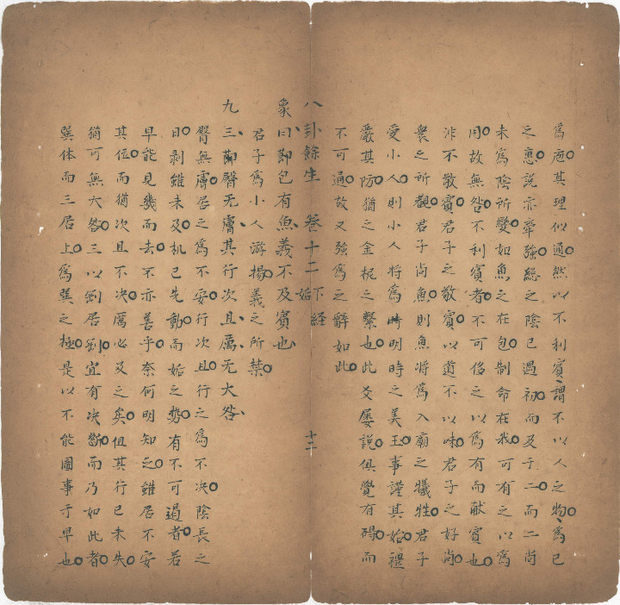 為庖其理似通然以不利賓謂不以人之物為已
之惠說亦牽強總之陰已過初而及于二而二尚
未為陰所變如魚之在包制命在我可有之以為
用故無咎不利賓者不可侈之以為有而献賓也
不敬賓君子之敬賓以道不以味君子之好尚
衆之所觀君子尚魚則魚將為入廟之犧牲君子
愛小人則小人将為時明時之美玉事謹其始禮
嚴其防猶之金柅之繫也此爻屡說俱覺有碍而
不可通故又強為之解如此
八卦餘生 卷十二 下經 姤 十二
象曰包有魚義不及賓也
君子為小人游揚義之所禁
九三臀无膚其行次且厲无大咎
臀無膚居之為不安行次且行之為不决陰長之
日剥雖未及机已先動而姤之勢有不可遏者若
早能見幾而去不亦善乎奈何明知之雖居不安
其位而猶次且不决厲必及之矣但其行已未失
猶可無大咎三以剛居剛宜有决斷而乃如此者
巽体而三居上為巽之極是以不能圖事于早也